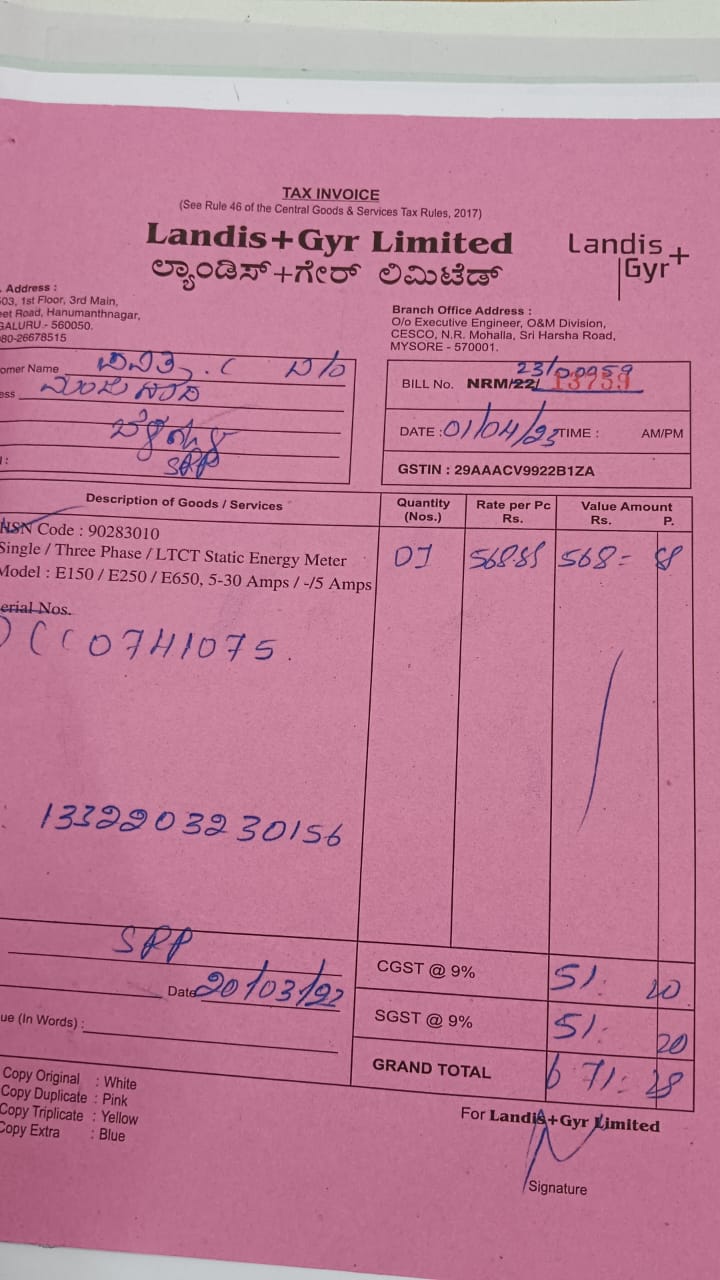 TAX INVOICE
(See Rule 46 of the Central Goods & Services Tax Rules, 2017)
Landis+Gyr Limited
ಲ್ಯಾಂಡಿಸ್+ಗೇರ್ ಲಿಮಿಟೆಡ್
Landis+
Gyr
. Address :
503, 1st Floor, 3rd Main,
eet Road, Hanumanthnagar,
GALURU - 560050.
080-26678515
Branch Office Address :
O/o Executive Engineer, O&M Division,
CESCO, N.R. Mohalla, Sri Harsha Road,
MYSORE - 570001.
omer Name
ess
SPP
BILL No. NRM/22/ 13759
23/00959
DATE : 01/04/23 TIME : AM/PM
GSTIN : 29AAACV9922B1ZA
Description of Goods / Services
Quantity (Nos.)
Rate per Pc Rs.
Value Amount Rs. P.
HSN Code : 90283010
Single / Three Phase / LTCT Static Energy Meter
Model : E150 / E250 / E650, 5-30 Amps / -/5 Amps
01 568.88 568= 88
erial Nos.
0741075
1332203230156
SPP
Date 20/03/22
ue (In Words) :
CGST @ 9% 51. 20
SGST @ 9% 51. 20
GRAND TOTAL 671. 28
Copy Original : White
Copy Duplicate : Pink
Copy Triplicate : Yellow
Copy Extra : Blue
For Landis+Gyr Limited
Signature